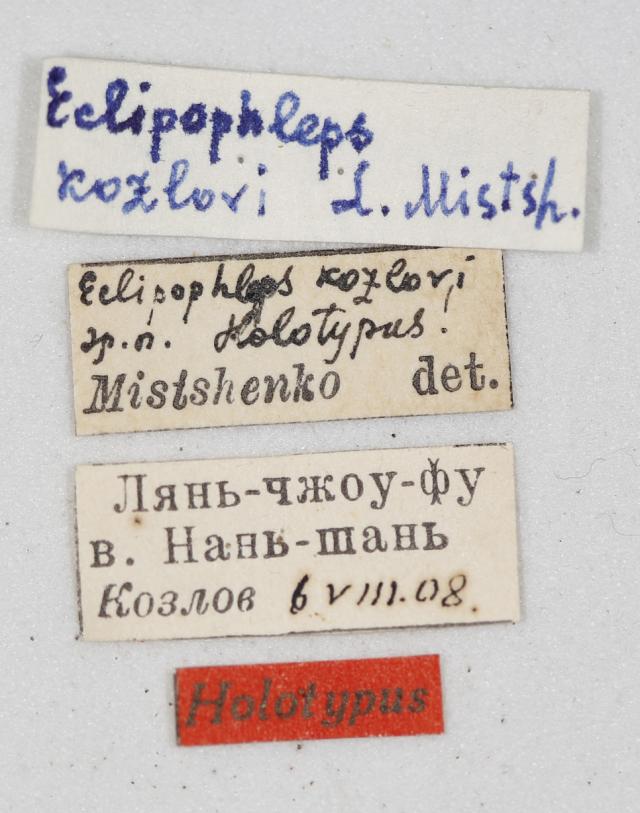 Eclipophleps
kozlovi L. Mistsh.
Eclipophleps kozlovi
sp.n. Holotypus!
Mistshenko det.
Лянь-чжоу-фу
в. Нань-шань
Козлов 6 VIII.08.
Holotypus